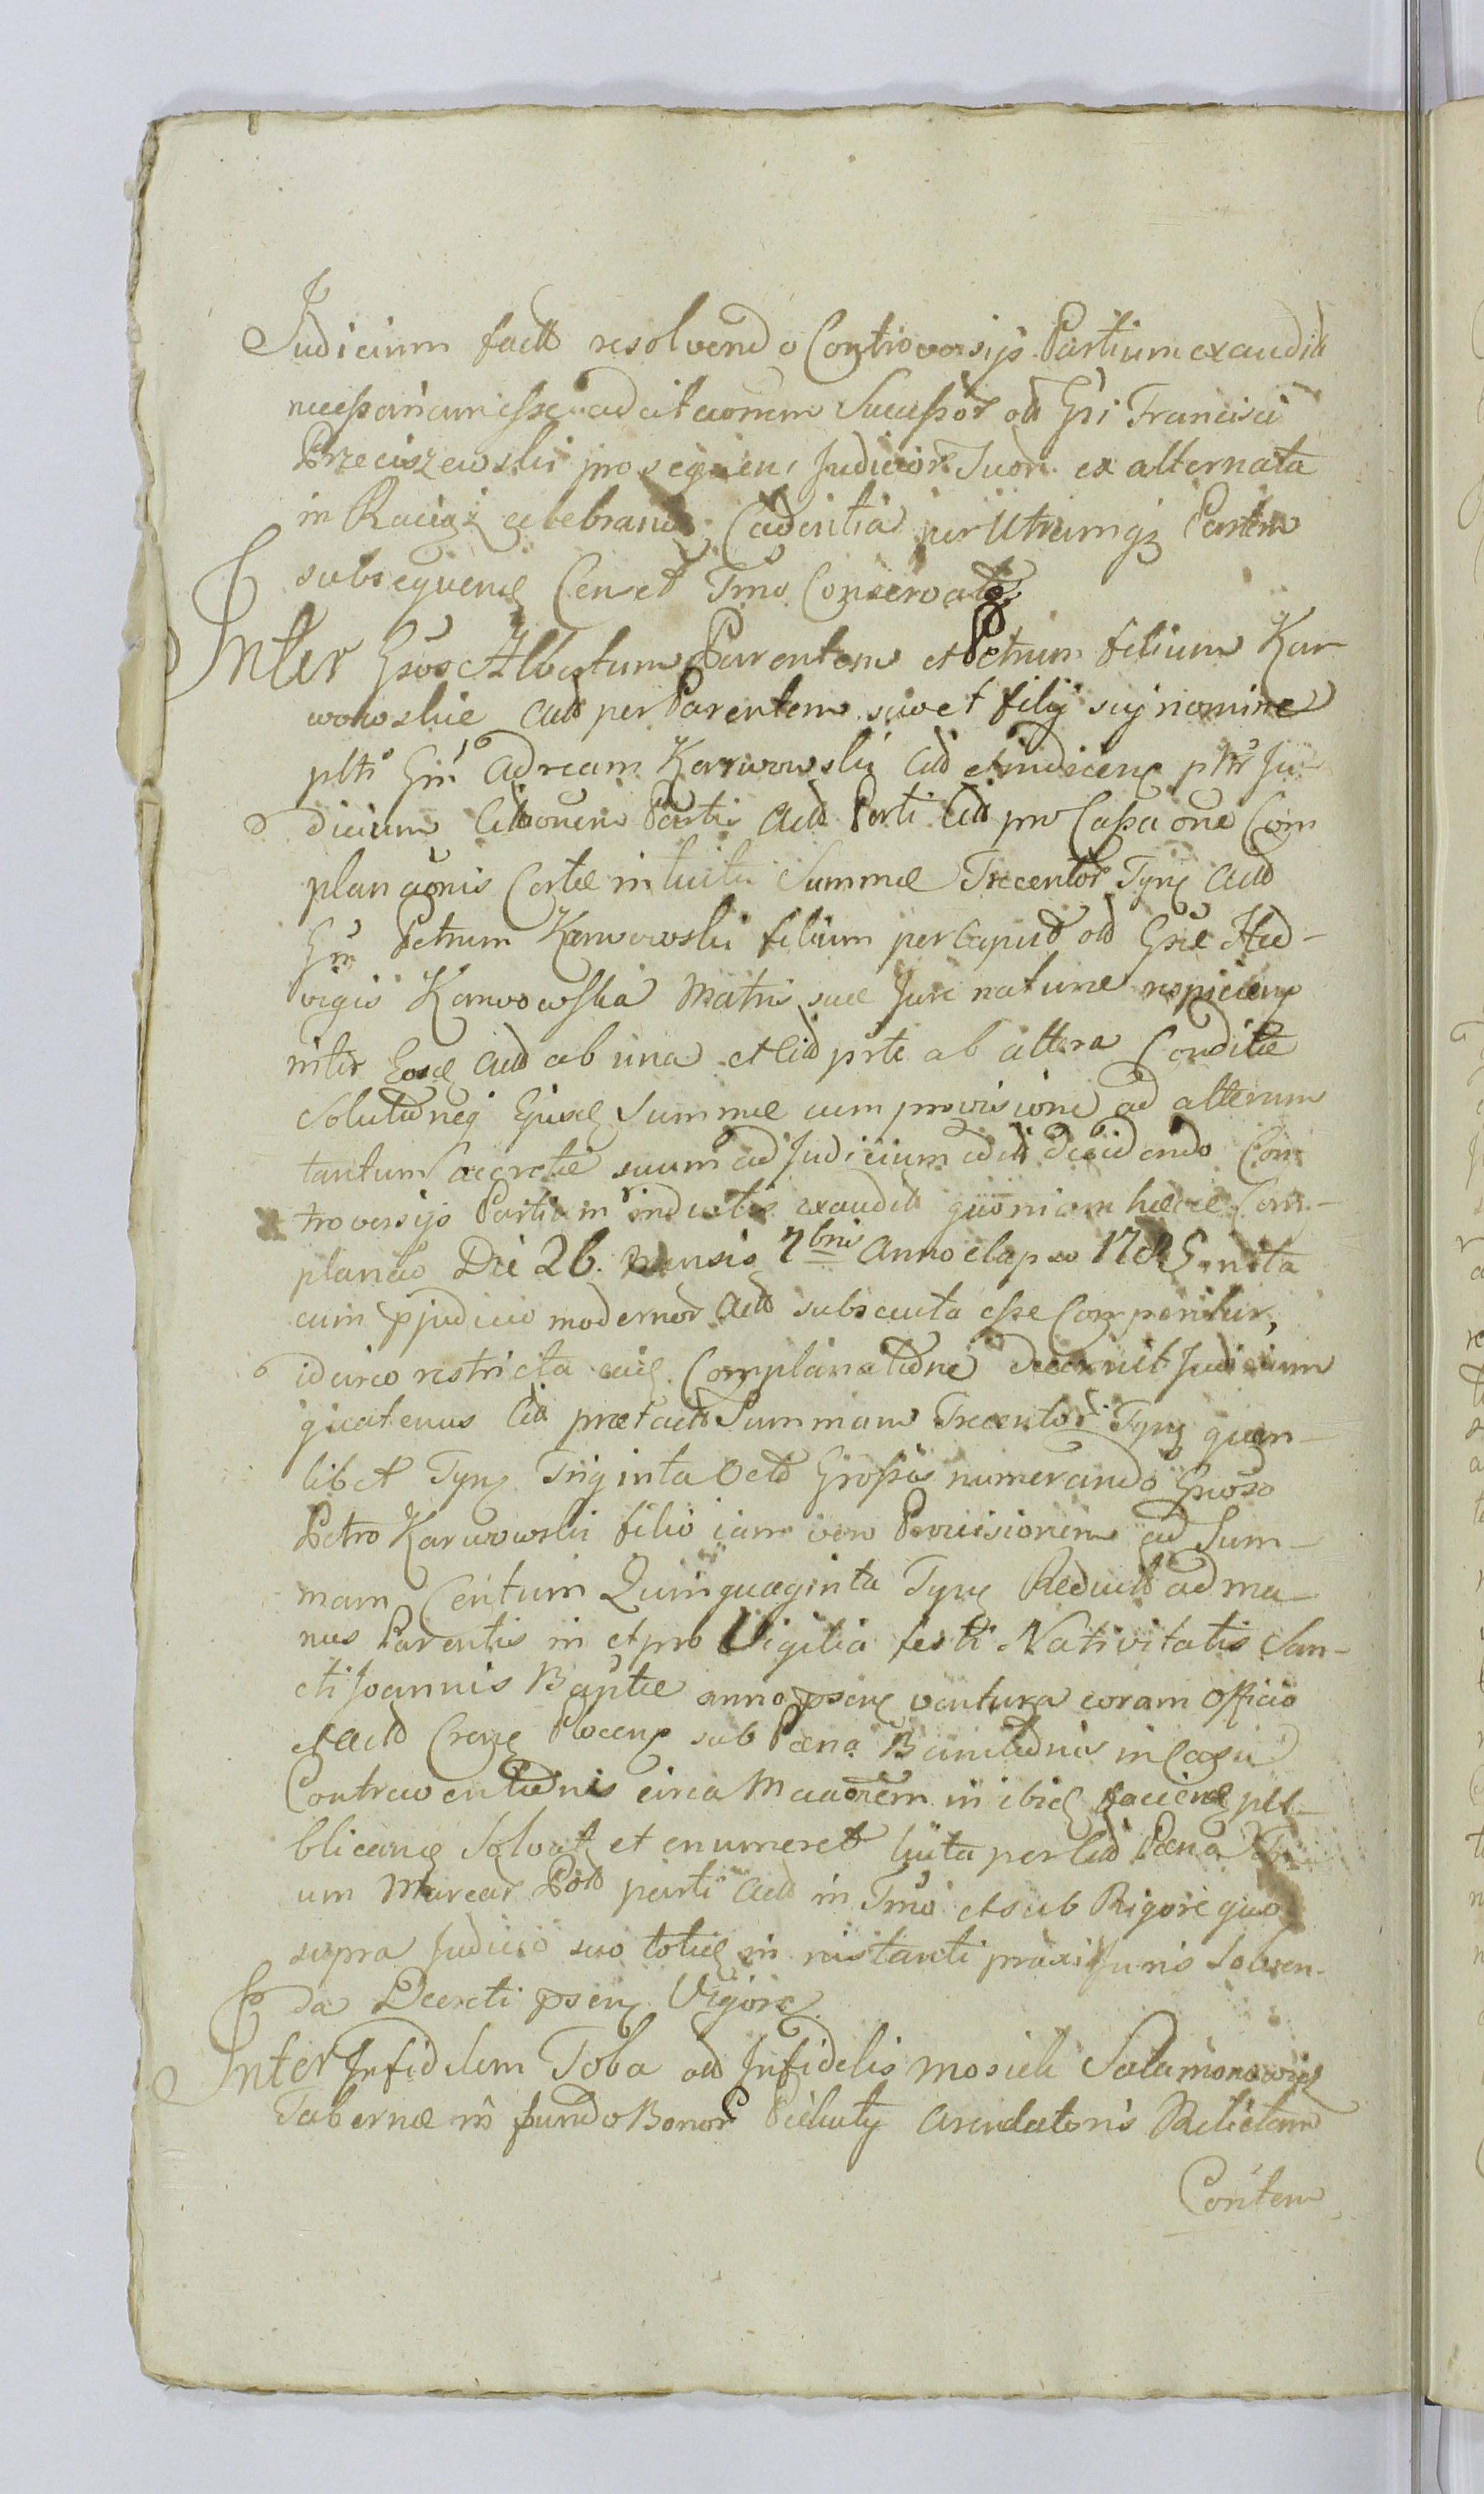 Judicium facto resolvendo Controversijs Partium exaudit
necessarium esse adcitationem Successor olì Gsi Francisci
Przeciszewski pro sequen Judicior Suor ex alternata
in Raciąż celebrand Cadentia per Utramq Partem
subsequend Censet Tmo Conservato
Inter Gsos Albertum Parentem et Petrum filium Kar-
wowskie Act per Parentem suo et filij sui nomine
plti Gm Adream Karwowski Cit et indicens pltr Ju-
dicium Citaonem Partis Act Parti Cit pro Cassaone Com
planaonis Certae intuitu Summae Trecentor Tynf Act
Gm Petrum Karwowski filium per Caput olì Gsae Hed-
vigis Karwowska Matris suae Jure naturae respiciens
inter Eosd Act ab una et Cit prte ab altera Conditae
Solutioneq Ejusd Summae cum provisione ad alterum
tantum accretae suum ad Judicium edit decidendo Con
troversijs Partium inductis exaudit quoniam haece Com-
planao Die 26. mensis 7bris Anno elapso 1785. inita
cum pjudicio modernor Act subsecuta esse Comperitur,
idcirco restricta ead Complanatione decernit Judicium
quatenus Cit praetact Summam Trecentor Tynf quem-
libet Tynf Triginta Octo Grossis numerando Gnoso
Petro Karwowski filio iam vero Provisionem ad Sum-
mam Centum Quinquaginta Tynf Reduct ad ma-
nus Parentis in et pro Vigilia festi Nativitatis San-
cti Joannis Baptae anno psend ventura coram Officio
et Act Crens Plocens sub Paena Banitionis in Casu
Contraventionis circa Maaorem in ibid faciend pu-
blicand Solvat et enumeret luita per Cit Paena Tri
um Marcar Pol parti Act in Tmo et sub Rigore quo
supra Judicio suo totid in instanti praxi Juris Solven-
da Decreti psens Vigore
Inter Infidelem Toba olì Infidelis Mosieli Salamonowicz
Tabernae in fundo Bonor Piechuty Arendatoris Relictam
Contem